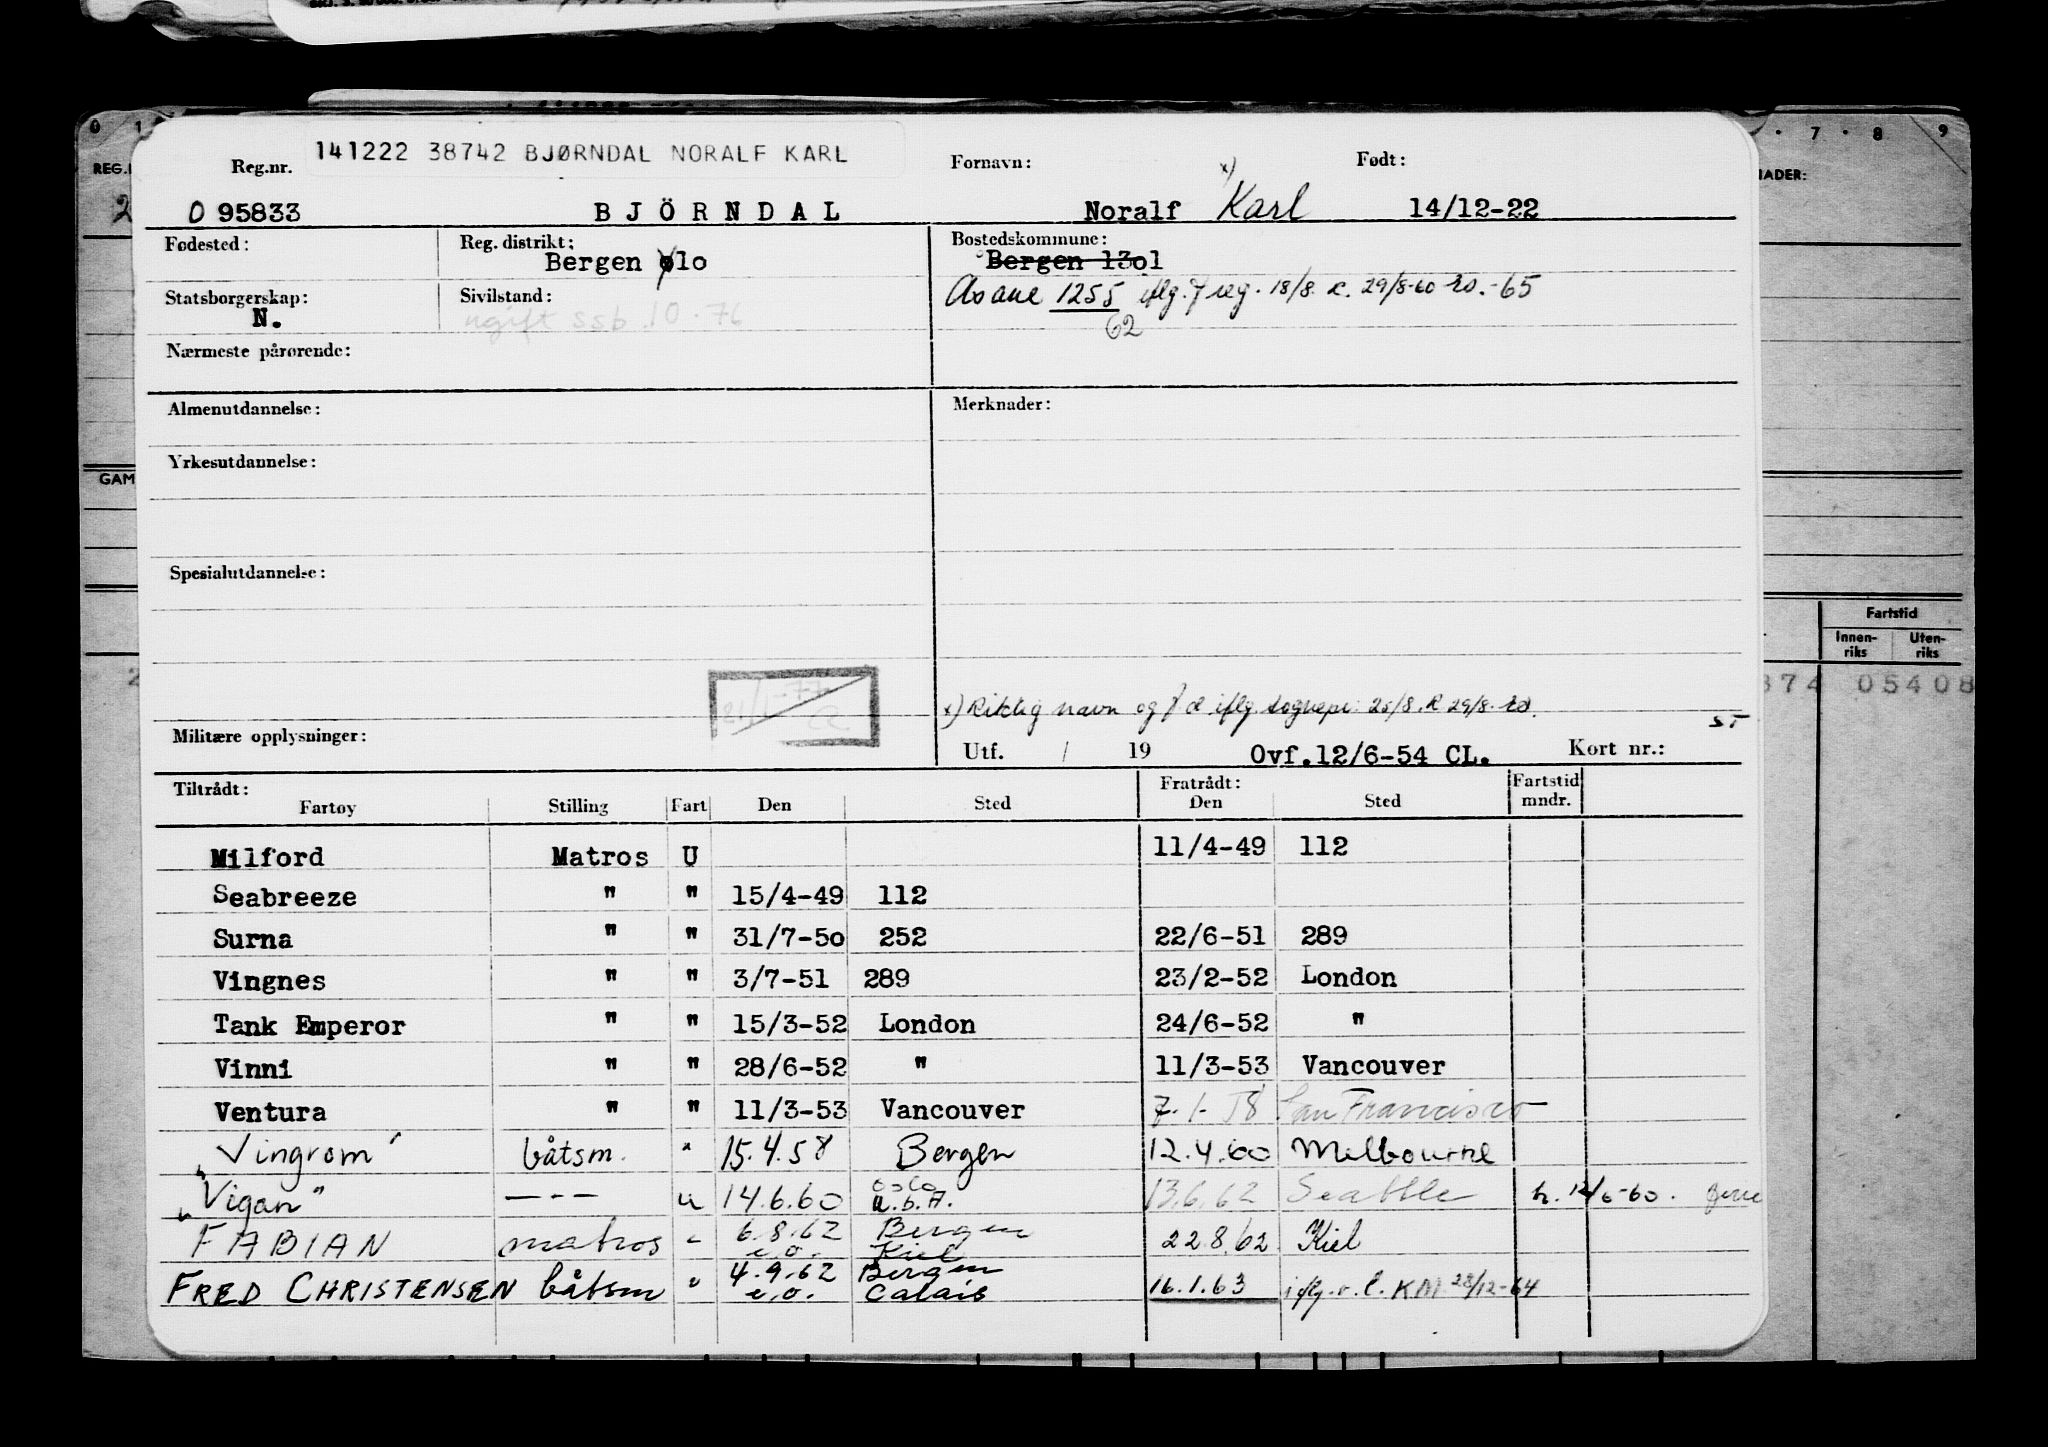 0 1 7 8 9
141222 38742 BJØRNDAL NORALF KARL
REG. Reg.nr. Fornavn: x) Født: NADER:
2 0 95833 B J Ö R N D A L Noralf Karl 14/12-22
Fødested: Reg. distrikt: Bostedskommune:
Bergen olo Bergen 13ol
Åsane 1255 iflg. freg. 18/8. R. 29/8-60 -65
Statsborgerskap: Sivilstand:
N. ugift ssb 10-76
62
Nærmeste pårørende:
Almenutdannelse: Merknader:
Yrkesutdannelse:
GAM
Spesialutdannelse:
Fartstid
Innen-riks Uten-riks
2 374 05408
21/1-77
x) Riktig navn og f d iflg. sognepr. 25/8. R 29/8.
ST
Militære opplysninger: Utf. / 19 Ovf.12/6-54 CL. Kort nr.:
Tiltrådt: Fratrådt: Fartstid
Fartøy Stilling Fart Den Sted Den Sted mndr.
Milford Matros U 11/4-49 112
Seabreeze " " 15/4-49 112
Surna " " 31/7-5o 252 22/6-51 289
Vingnes " " 3/7-51 289 23/2-52 London
Tank Emperor " " 15/3-52 London 24/6-52 "
Vinni " " 28/6-52 " 11/3-53 Vancouver
Ventura " " 11/3-53 Vancouver 7.1-58 San Francisco
"Vingrom" båtsm. " 15.4.58 Bergen 12.4.60 Melbourne
"Vigan" --- u 14.6.60 Oslo u.b.A. 13.6.62 Seattle h. 12/6-60.
FABIAN matros " 6.8.62 e.o. Bergen Kiel 22.8.62 Kiel
FRED CHRISTENSEN båtsm " 4.9.62 e.o. Bergen Calais 16.1.63 iflg. r.l. KM 28/12-64